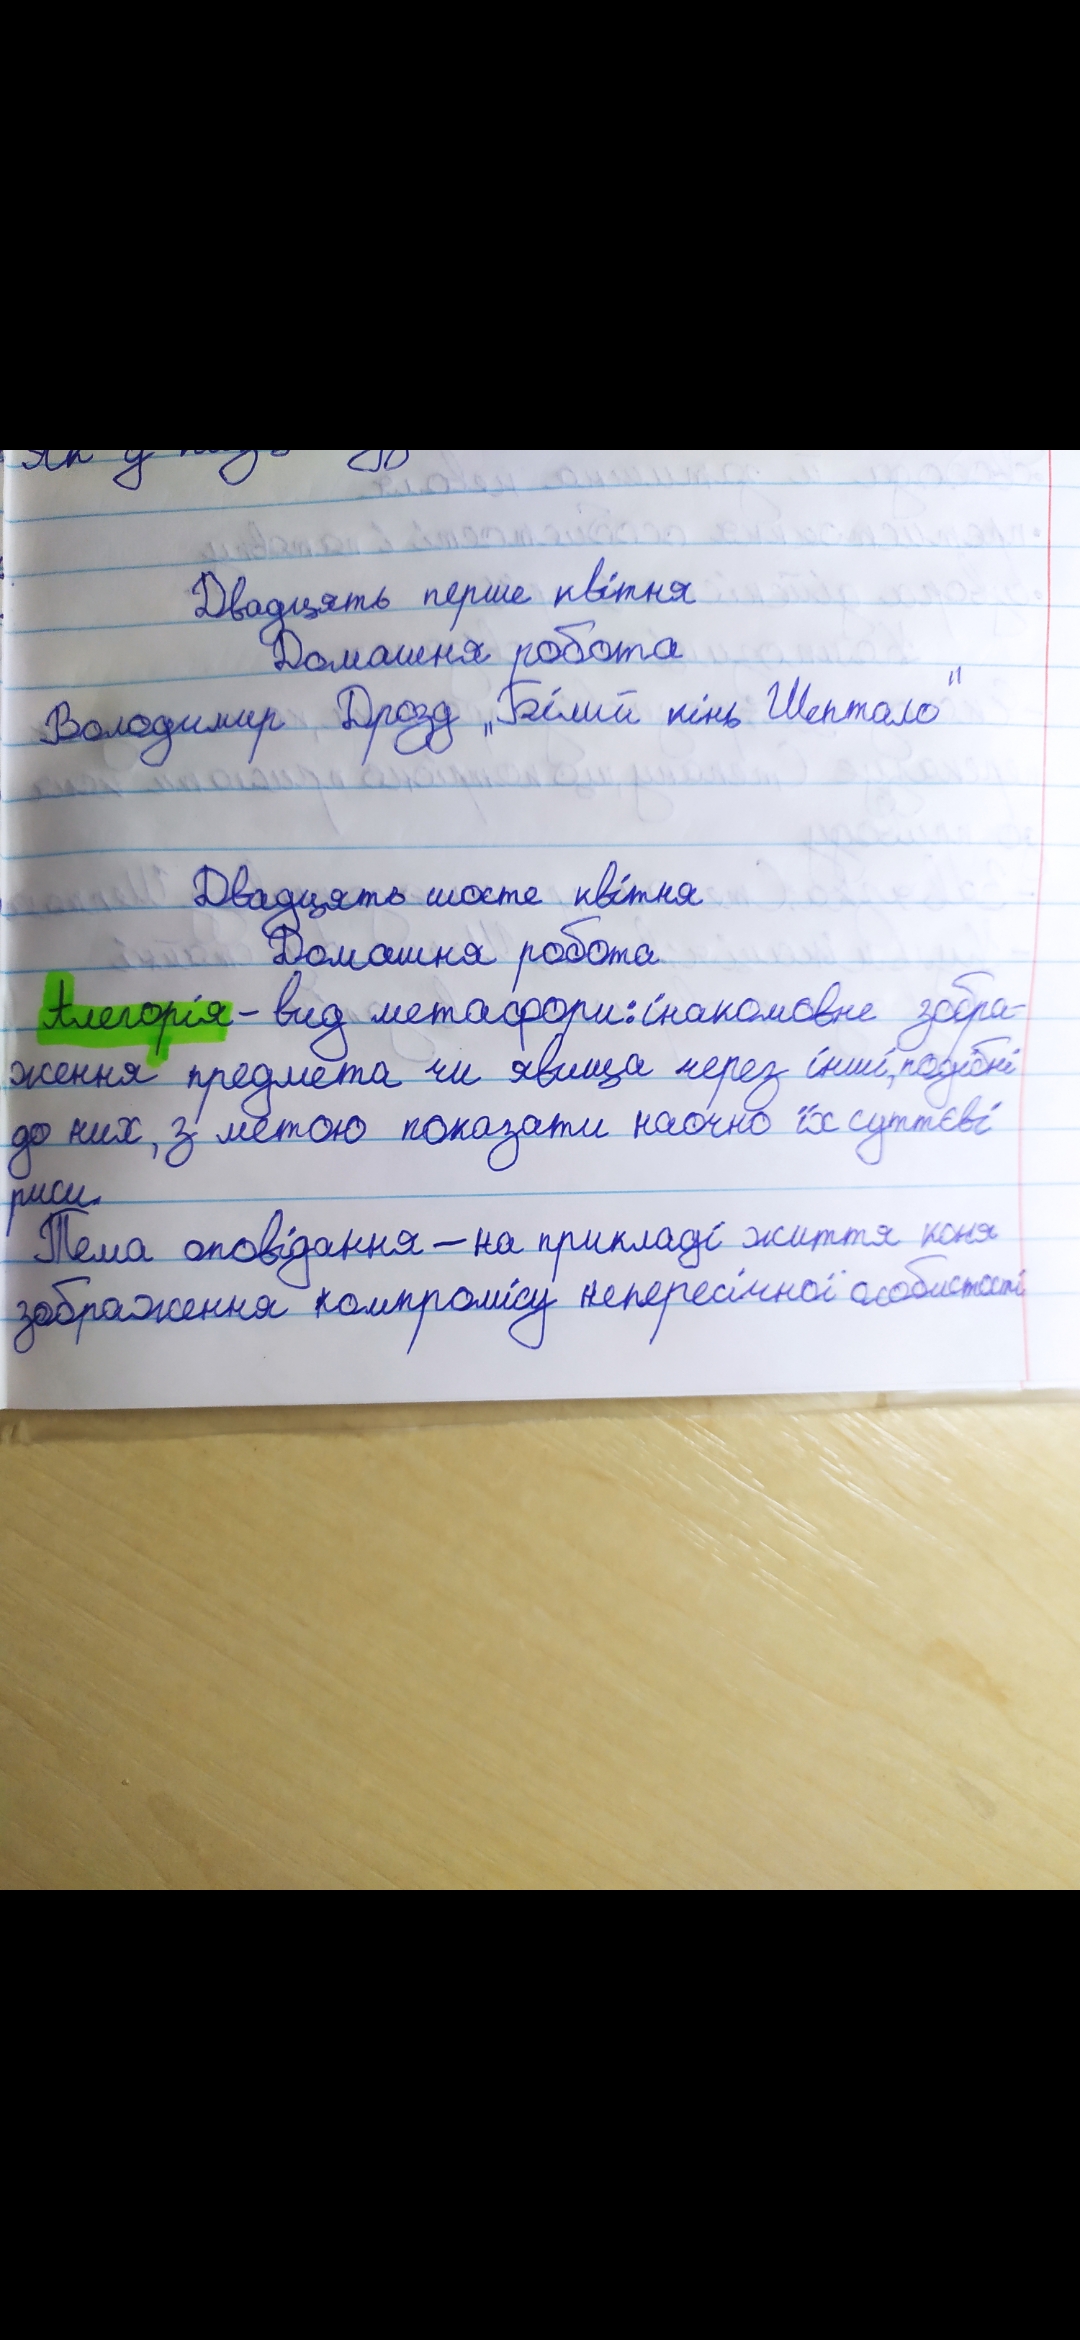 Як у
Двадцять перше квітня
Домашня робота
Володимир Дрозд „Білий кінь Шептало"
Двадцять шосте квітня
Домашня робота
Алегорія - вид метафори: інакомовне зобра-
ження предмета чи явища через інші, подібні
до них, з метою показати наочно їх суттєві
риси.
Тема оповідання - на прикладі життя коня
зображення компромісу непересічної особистості